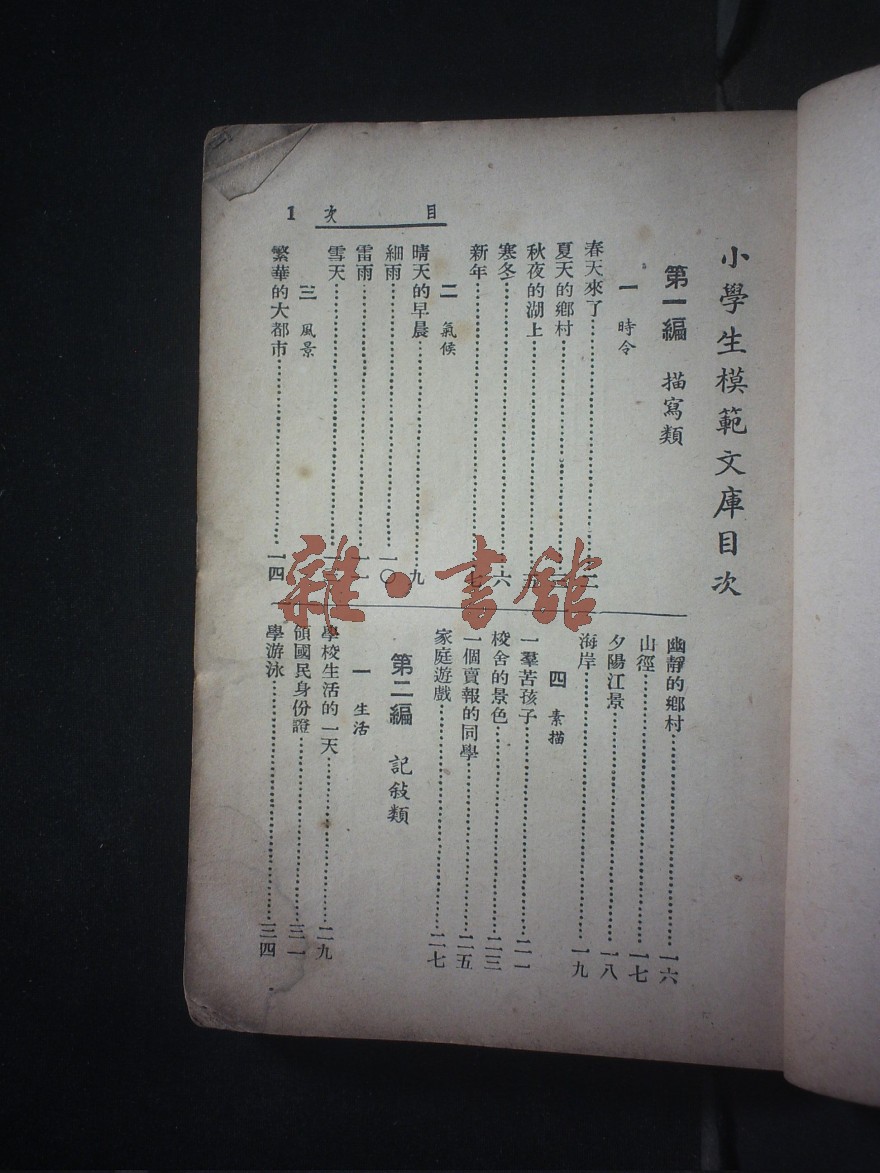 小學生模範文庫目次
目次 1
第一編 描寫類
一 時令
春天來了……二
夏天的鄉村……三
秋夜的湖上……五
寒冬……六
新年……七
二 氣候
晴天的早晨……九
細雨……一〇
雷雨……一一
雪天……一三
三 風景
繁華的大都市……一四
幽靜的鄉村……一六
山徑……一七
夕陽江景……一八
海岸……一九
四 素描
一羣苦孩子……二一
校舍的景色……二三
一個賣報的同學……二五
家庭遊戲……二七
第二編 記敍類
一 生活
學校生活的一天……二九
領國民身份證……三一
學游泳……三四
雜·書館